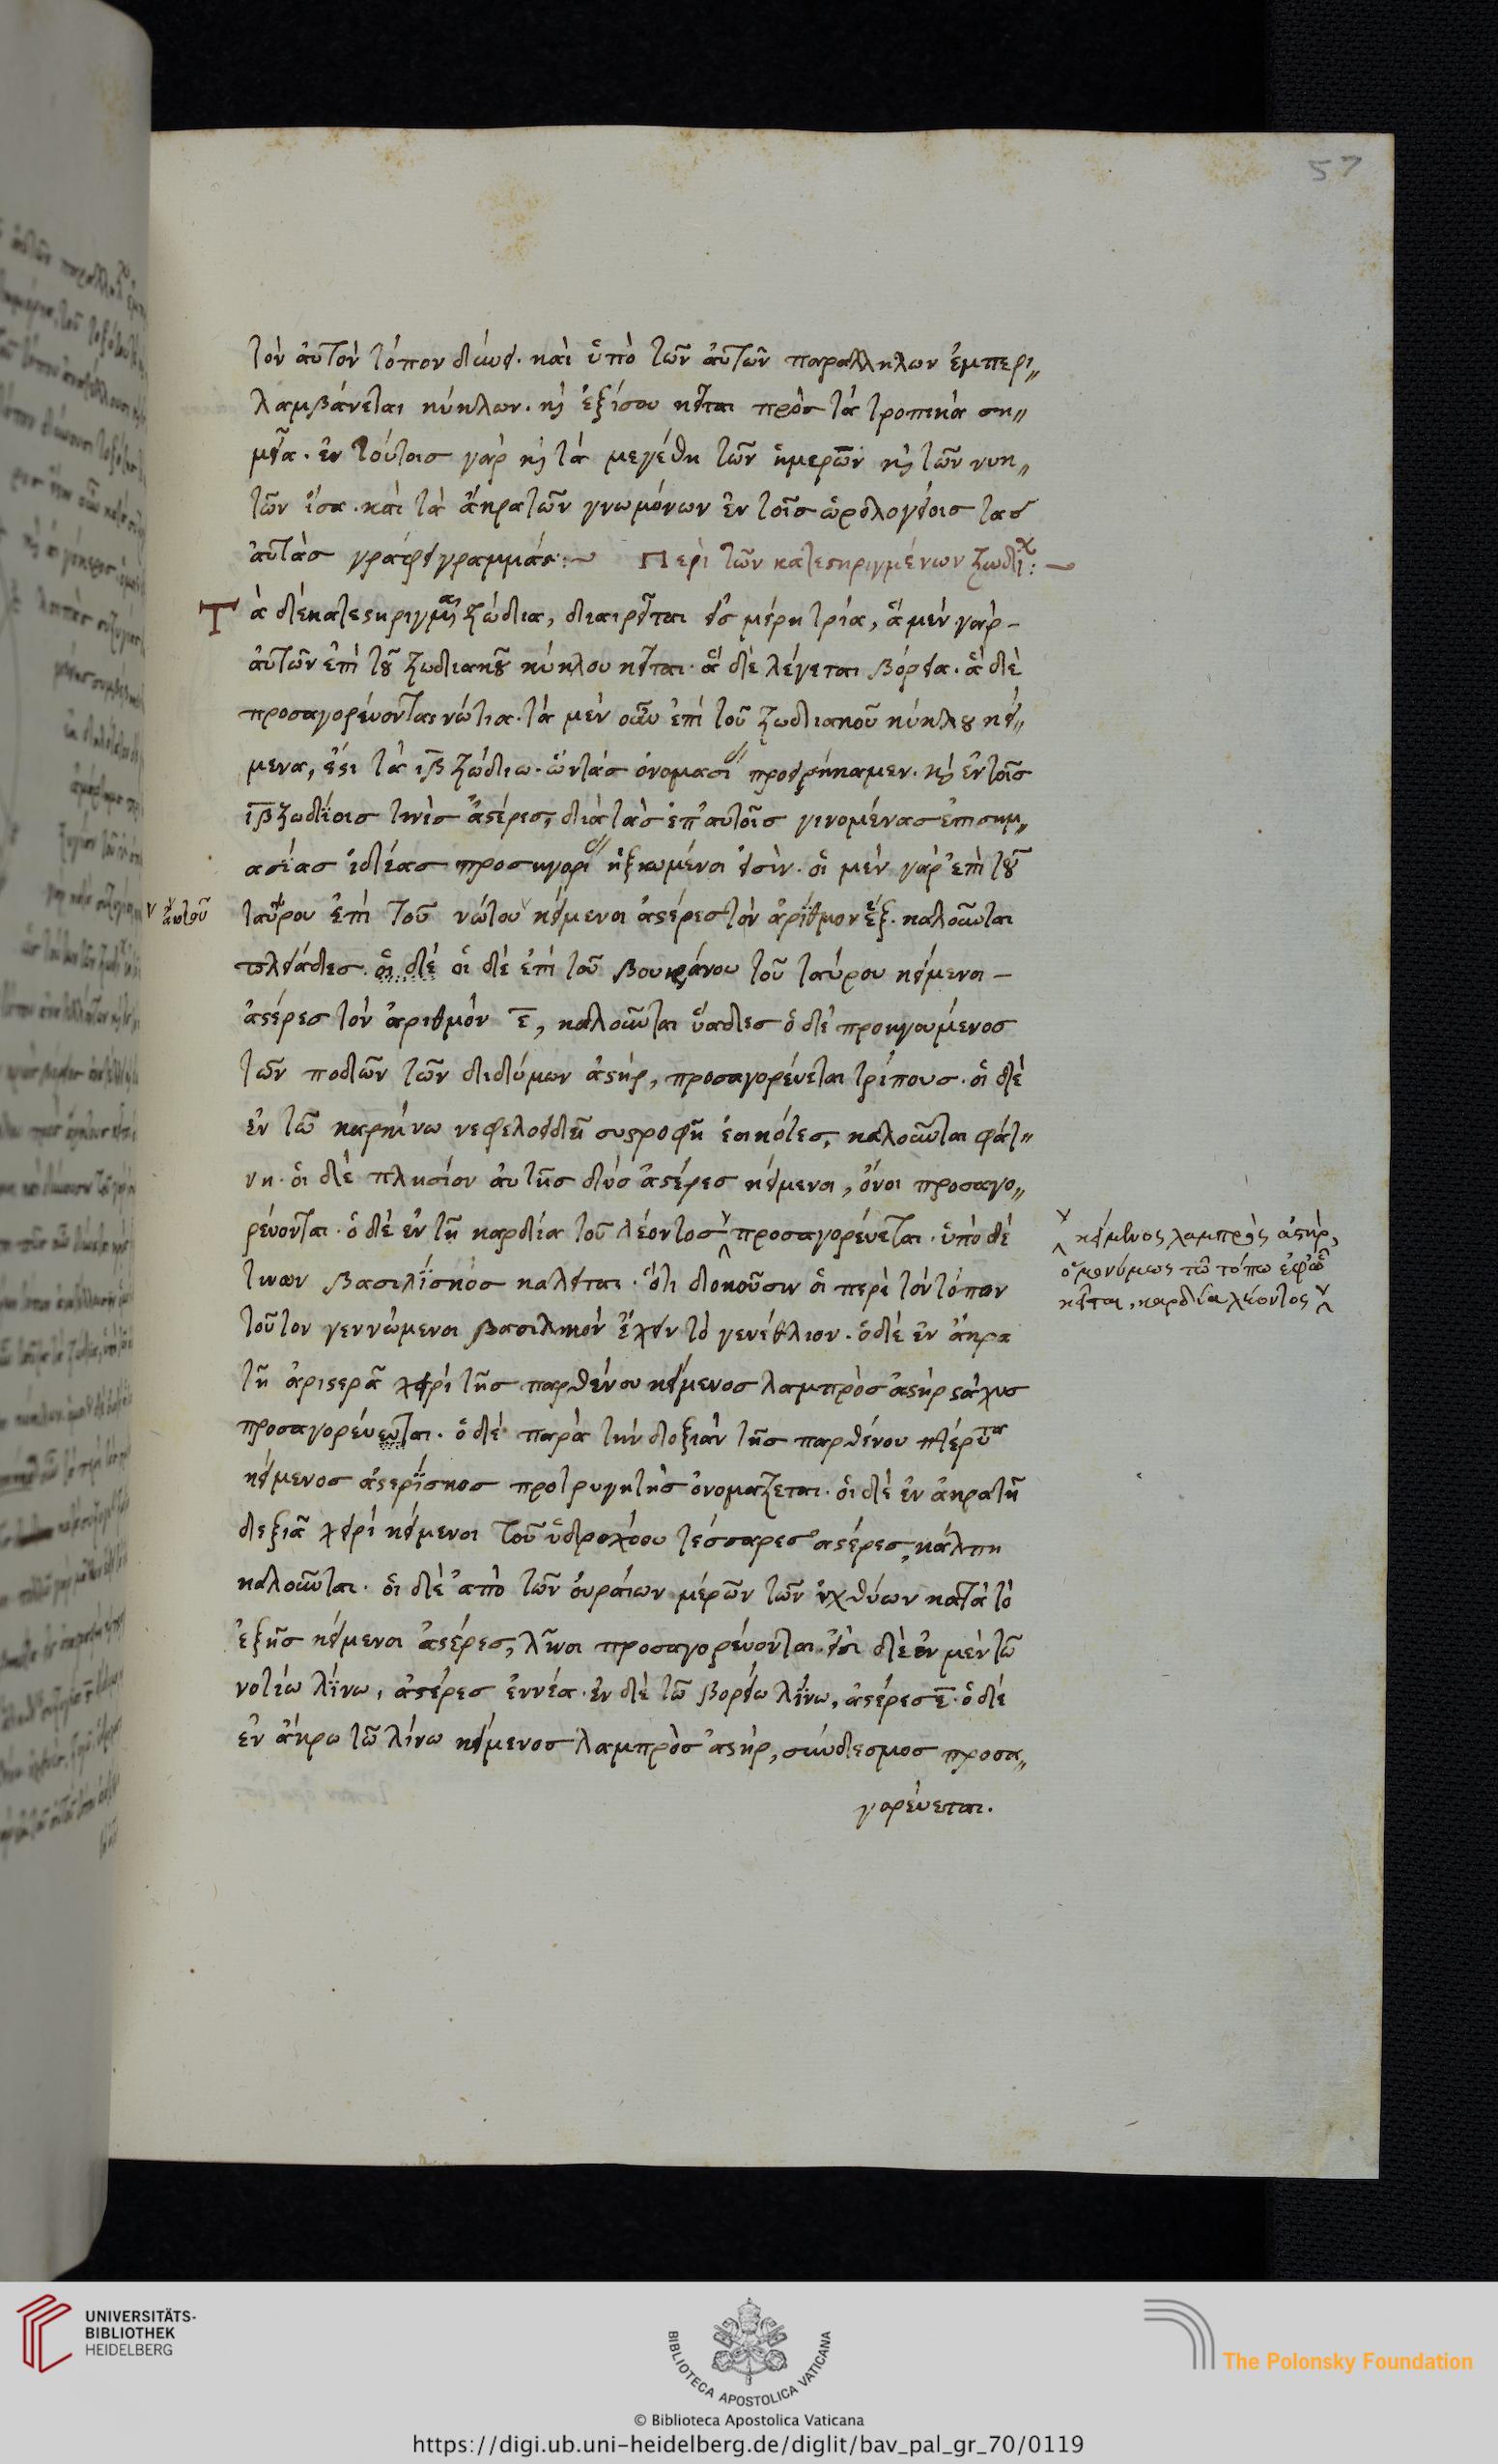 57
τὸν αὐτὸν τόπον δύνει. καὶ ὑπὸ τῶν αὐτῶν παραλλήλων ἐμπερι
λαμβάνεται κύκλων. καὶ ἐξίσου κεῖται πρὸς τὰ τροπικὰ ση
μεῖα. ἐν τούτοις γὰρ καὶ τὰ μεγέθη τῶν ἡμερῶν καὶ τῶν νυκ
τῶν ἴσα. καὶ τὰ ἄκρα τῶν γνωμόνων ἐν τοῖς ὡρολογείοις τας
αὐτὰς γράφει γραμμάς:~ Περὶ τῶν κατεστηριγμένων ζωδί:~
Τὰ δὲ κατεστηριγμένα ζώδια, διαιρεῖται εἰς μέρη τρία, ἃ μὲν γὰρ
αὐτῶν ἐπὶ τοῦ ζωδιακοῦ κύκλου κεῖται. ἃ δὲ λέγεται βόρεια. ἃ δὲ
προσαγορέυονται νότια. τὰ μὲν οὖν ἐπὶ τοῦ ζωδιακοῦ κύκλου κεί
μενα, ἐστι τὰ ιβ ζώδια. ὧν τὰς ὀνομασί προειρήκαμεν. καὶ ἐν τοῖς
ιβ ζωδίοις τινὲς ἀστέρες, διὰ τὰς ἐπ' αυτοῖς γινομένας ἐπισημ
ασίας ἰδίας προσηγορί ἠξιωμένοι εἰσὶν. οἱ μὲν γὰρ ἐπὶ τοῦ
ταύρου ἐπὶ τοῦ νώτου κείμενοι ἀστέρες τὸν ἀριθμὸν ἕξ. καλοῦνται
αὐτοῦ
πλειάδες. οἱ δὲ οἱ δὲ ἐπὶ τοῦ βουκράνου τοῦ ταύρου κείμενοι
ἀστέρες τὸν ἀριθμὸν ε, καλοῦνται ὑάδες ὁ δὲ προηγουμένος
τῶν ποδῶν τῶν διδύμων ἀστὴρ, προσαγορέυεται τρίπους. οἱ δὲ
ἐν τῶ καρκίνω νεφελοειδῆ συστροφῆ ἐοικότες, καλοῦνται φάτ
νη. οἱ δὲ πλησίον ἀυτῆς δύο ἀστέρες κείμενοι, ὄνοι προσαγο
ρέυονται. ὁ δὲ ἐν τῆ καρδία τοῦ λέοντος προσαγορέυεται. ὑπὸ δέ
κείμενος λαμπρὸς ἀστὴρ,
ὁμωνύμως τῶ τόπω ἐφ' ὧ
κεῖται, καρδία λέοντος
τινων βασιλίσκος καλεῖται. ὅτι δοκοῦσιν οἱ περὶ τὸν τόπον
τοῦτον γεννώμενοι βασιλικὸν ἔχειν τὸ γενέθλιον. ὁ δὲ ἐν ἄκρα
τῆ ἀριστερᾶ χειρὶ τῆς παρθένου κείμενος λαμπρὸς ἀστὴρ στάχυς
προσαγορέυεται. ὁ δὲ παρὰ τὴν δεξιὰν τῆς παρθένου πτέρυγα
κείμενος ἀστερίσκος προτρυγητὴς ὀνομάζεται. οἱ δὲ ἐν ἄκρα τῆ
δεξιᾶ χειρὶ κείμενοι τοῦ ὑδροχόου τέσσαρες ἀστέρες, κάλπη
καλοῦνται. οἱ δὲ ἀπὸ τῶν ὀυραίων μερῶν τῶν ἰχθύων κατὰ τὸ
ἑξῆς κείμενοι ἀστέρες, λῖνοι προσαγορέυονται. εἰσὶ δὲ ἐν μὲν τῶ
νοτίω λίνω, ἀστέρες ἐννέα. ἐν δὲ τῶ βορείω λίνω, ἀστέρες ε. ὁ δὲ
ἐν ἄκρω τῶ λίνω κείμενος λαμπρὸς ἀστὴρ, σύνδεσμος προσα
γορέυεται.
UNIVERSITÄTS-
BIBLIOTHEK
HEIDELBERG
BIBLIOTECA APOSTOLICA VATICANA
The Polonsky Foundation
© Biblioteca Apostolica Vaticana
https://digi.ub.uni-heidelberg.de/diglit/bav_pal_gr_70/0119